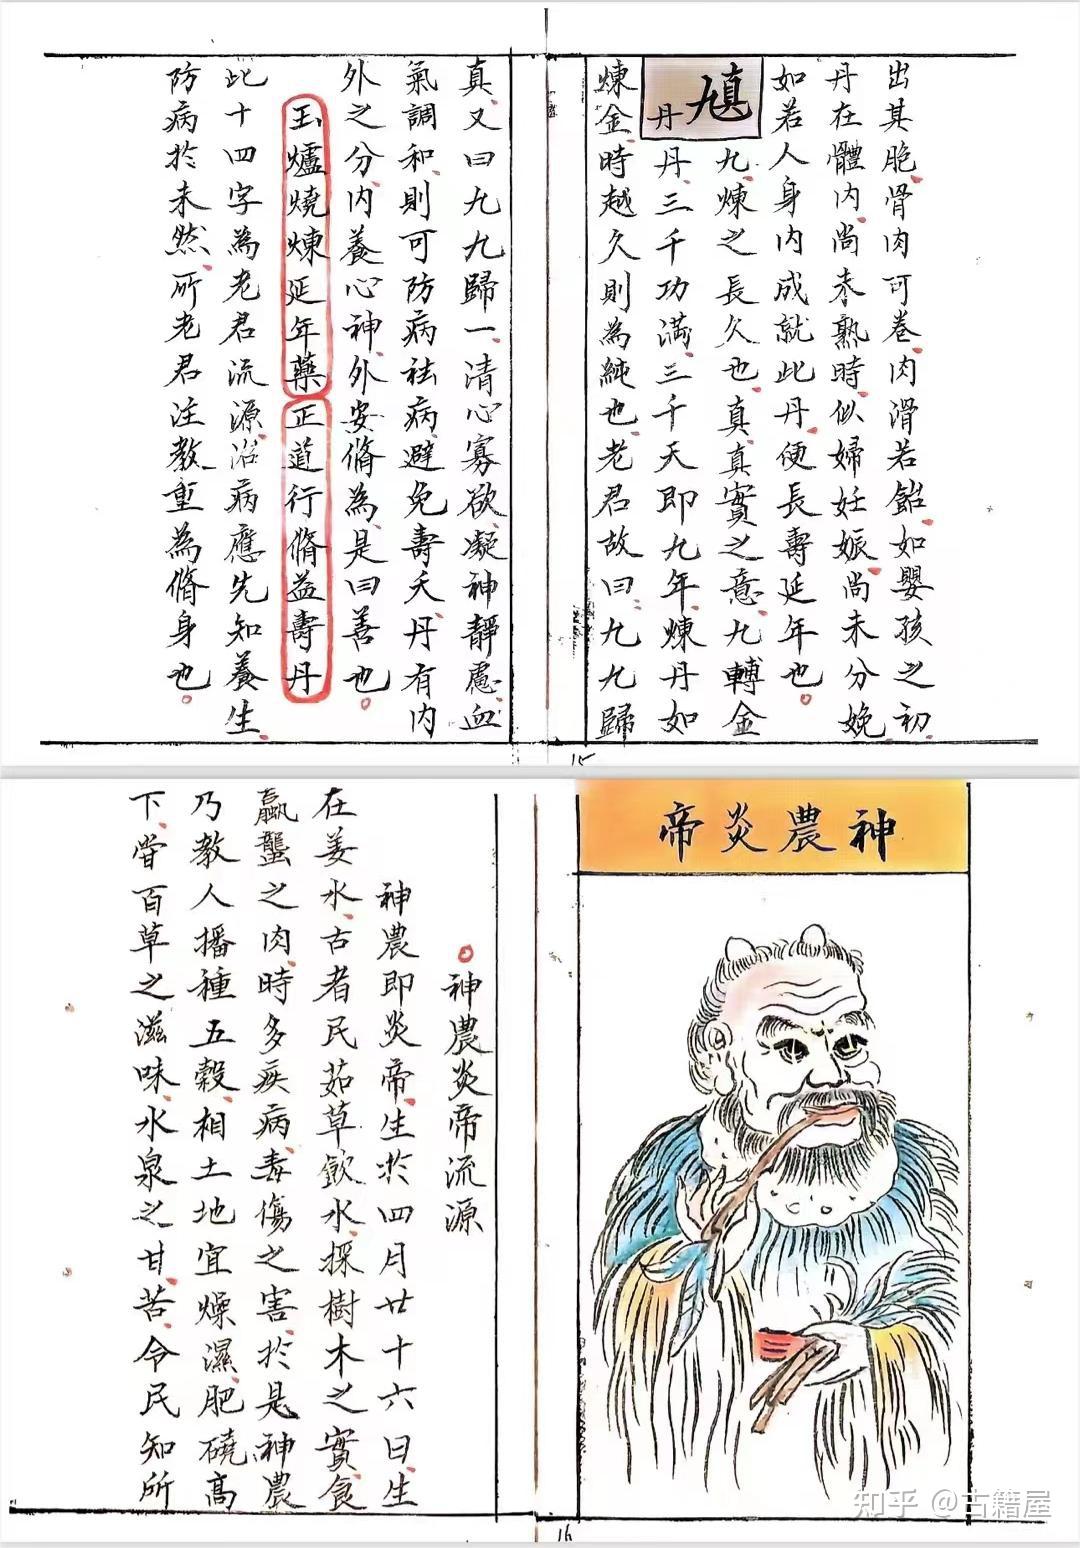 出其胞骨肉可卷肉滑若飴如嬰孩之初
丹在體內尚未熟時似婦妊娠尚未分娩
如若人身內成就此丹便長壽延年也
九真丹
九煉之長久也真真實之意九轉金
丹三千功滿三千天即九年煉丹如
煉金時越久則為純也老君故曰九九歸
真又曰九九歸一清心寡欲凝神靜慮血
氣調和則可防病祛病避免壽夭丹有內
外之分內養心神外安脩為是曰善也
玉爐燒煉延年藥正道行脩益壽丹
此十四字為老君流源治病應先知養生
防病於未然所老君注教重為脩身也
15
神農炎帝
神農炎帝流源
神農即炎帝生於四月廿十六日生
在姜水古者民茹草飲水採樹木之實食
蠃蠪之肉時多疾病毒傷之害於是神農
乃教人播種五穀相土地宜燥濕肥磽高
下嘗百草之滋味水泉之甘苦令民知所
16
知乎 @古籍屋